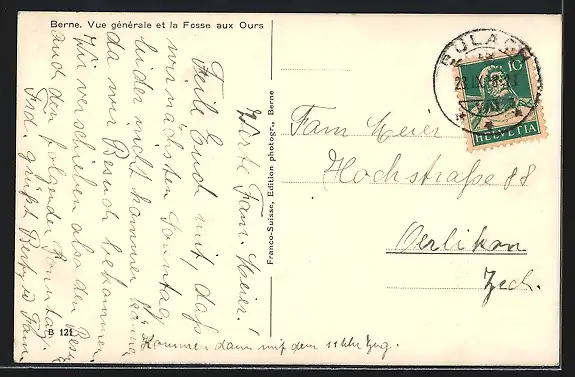 Berne. Vue générale et la Fosse aux Ours
Werte Fam. Meier!
Teile Euch mit, dass
wir nächsten Sonntag
leider nicht kommen können
da wir Besuch bekommen.
Wir verschieben also den Besuch
auf den folgenden Sonntag.
Frdl. grüsst Fam.
Kommen dann mit dem 11 Uhr Zug.
B 121
Franco-Suisse, Edition photogr., Berne
10
HELVETIA
Fam Meier
Hochstraße 88
Oerlikon
Zch.